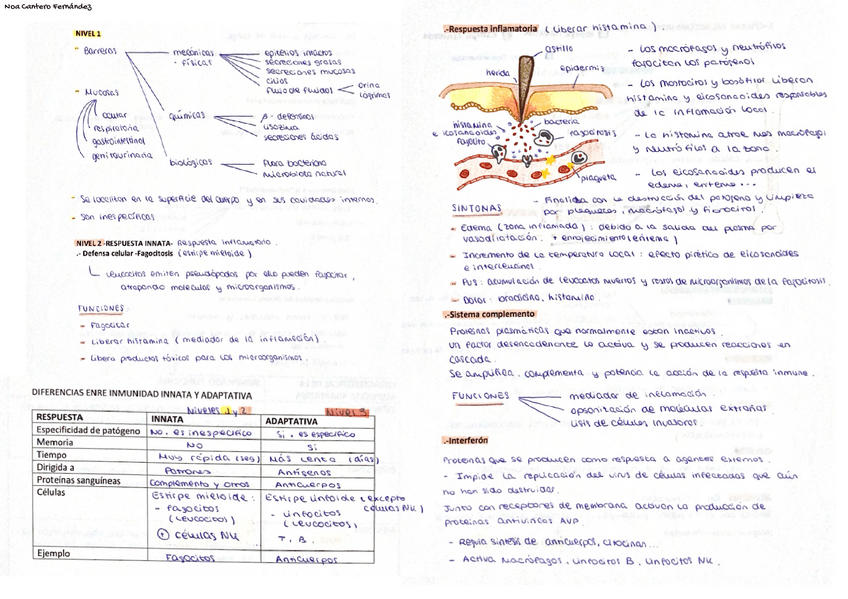 Noa Cantero Fernández
NIVEL 1
- Barreras
mecánicas
- físicas
epitelios intactos
secreciones grasas
secreciones mucosas
cilios
flujo de fluidos
orina
lágrimas
- Mucosas
ocular
respiratoria
gastrointestinal
genitourinaria
químicas
β-defensinas
lisozima
secreciones ácidas
biológicas
flora bacteriana
microbiota natural
- Se localizan en la superficie del cuerpo y en sus cavidades internas.
- Son inespecíficas
NIVEL 2-RESPUESTA INNATA- Respuesta inflamatoria.
.- Defensa celular -Fagocitosis (estirpe mieloide)
Leucocitos emiten pseudópodos por ello pueden fagocitar,
atrapando moléculas y microorganismos.
FUNCIONES
- Fagocitar
- Liberar histamina (mediador de la inflamación).
- Libera productos tóxicos para los microorganismos.
DIFERENCIAS ENRE INMUNIDAD INNATA Y ADAPTATIVA
Niveles 1 y 2
Nivel 3
RESPUESTA INNATA ADAPTATIVA
Especificidad de patógeno No, es inespecífico Si, es específico
Memoria No Si
Tiempo Muy rápida (seg) Más lenta (días)
Dirigida a Patrones Antígenos
Proteínas sanguíneas Complemento y otros Anticuerpos
Células Estirpe mieloide: Estirpe linfoide (excepto células NK)
- Fagocitos - Linfocitos
(Leucocitos) (Leucocitos,
+ células NK T, B.
Ejemplo Fagocitos Anticuerpos
.-Respuesta inflamatoria (Liberar histamina)
astilla
herida
epidermis
histamina
e icosanoides
bacteria
fagocito
fagocitosis
plaqueta
- Los macrófagos y neutrófilos
fagocitan los patógenos
- Los mastocitos y basófilos liberan
histamina y eicosanoides responsables
de la inflamación local
- La histamina atrae más macrófagos
y neutrófilos a la zona.
- Los eicosanoides producen el
edema, eritema...
- Finaliza con la destrucción del patógeno y limpieza
por plaquetas, macrófagos y fibrocitos.
SINTOMAS
- Edema (zona inflamada): debido a la salida del plasma por
vasodilatación. + enrojecimiento (eritema)
- Incremento de la temperatura local: efecto pirético de eicosanoides
e interleucina1.
- Pus: acumulación de leucocitos muertos y restos de microorganismos de la fagocitosis.
- Dolor: bradicina, histamina.
.-Sistema complemento
Proteínas plasmáticas que normalmente están inactivas.
Un factor desencadenante lo activa y se producen reacciones en
cascada.
Se amplifica, complementa y potencia la acción de la respuesta inmune.
FUNCIONES
mediador de inflamación.
opsonización de moléculas extrañas.
lisis de células invasoras.
.-Interferón
Proteínas que se producen como respuesta a agentes externos.
- Impide la replicación del virus de células infectadas que aún
no han sido destruidas.
Junto con receptores de membrana activan la producción de
proteínas antivíricas AVP.
- Regula síntesis de anticuerpos, citocinas...
- Activa Macrófagos, linfocitos B, linfocitos NK.